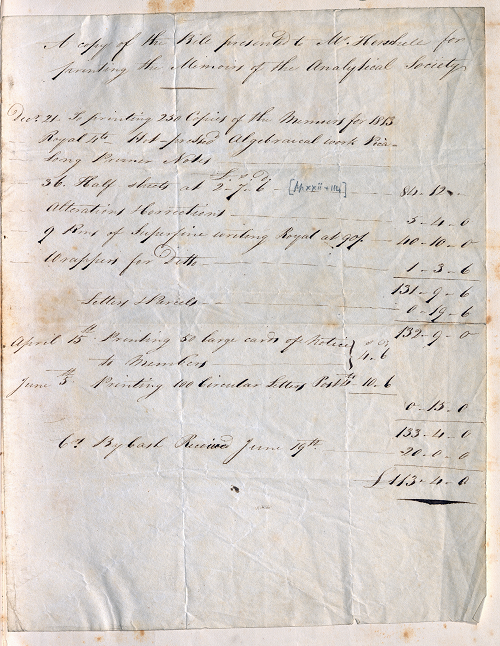 A copy of the Bill presented to Mr. Herschell for
printing the Memoirs of the Analytical Society
Decr 21. To printing 250 Copies of the Memoirs for 1813
Royal 4to Hot-pressed Algebraical work Pica
Long Primer Notes
£ s D
36. Half sheets at 2-7-6 [pp xxii + 114] 84-12-
Alterations & Corrections 5-4-0
9 Rms of Superfine writing Royal at 90/ 40-10-0
Wrappers for Ditto 1-3-6
131-9-6
Letters & Parcels 0-19-6
132-9-0
April 15th Printing 50 large cards of Notice } s D
to Members 4-6
June 5th Printing 100 Circular Letters Post 10-6
0-15-0
133-4-0
Cr By Cash Received June 19th 20-0-0
£113-4-0